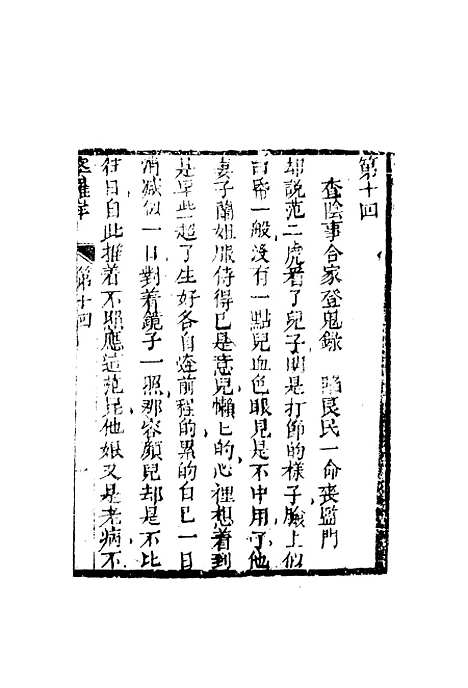 第十回
查陰事合家登鬼錄　陷良民一命喪監門
却說范二虎看了兒子明是打飾的樣子臉上似
帋一般沒有一點兒血色眼見是不中用了他
妻子蘭姐服侍得已是意兒懶上的心裡想着到
是早些超了生好各自逩前程的累的自已一日
消减似一日對着鏡子一照那容顏兒却是不比
往日自此推着不照應這范昆他娘又是老病不
第十回